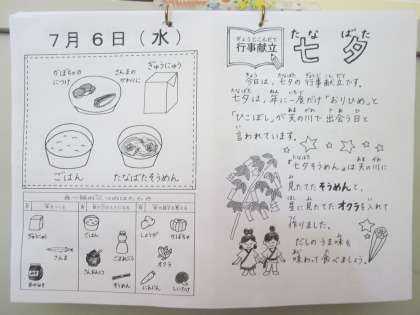 7月6日(水)
かぼちゃの
につけ
さんまの
かばやき
ぎゅうにゅう
ごはん
たなばたそうめん
ぎゅうにゅう
さんま
ごはん
ごまあぶら
さんおんとう
そうめん
しょうが
かぼちゃ
オクラ
にんじん
しいたけ
ぎょうじこんだて
行事献立
たなばた
七夕
今日は、七夕の行事献立です。
七夕は、年に一度だけ「おりひめ」と
「ひこぼし」が天の川で出会う日と
言われています。
『七夕そうめん』は天の川に
見たてたそうめんと、
星に見たてたオクラを入れて
作りました。
だしのうま味を
味わって食べましょう。